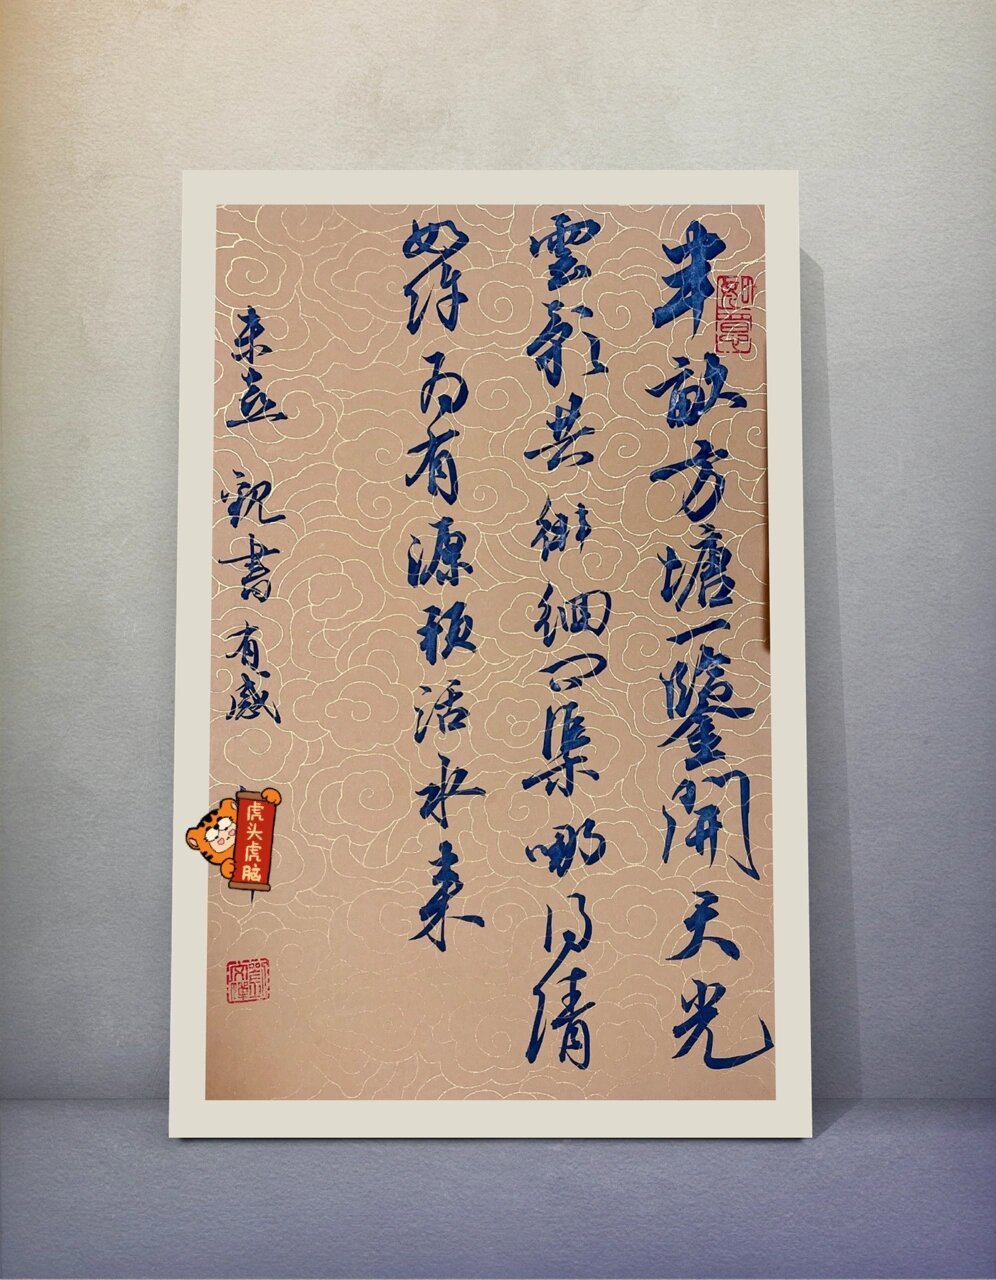 半畝方塘一鑒開天光
雲影共徘徊问渠哪得清
如許为有源頭活水来
朱熹 觀書有感
如意
虎头虎脑